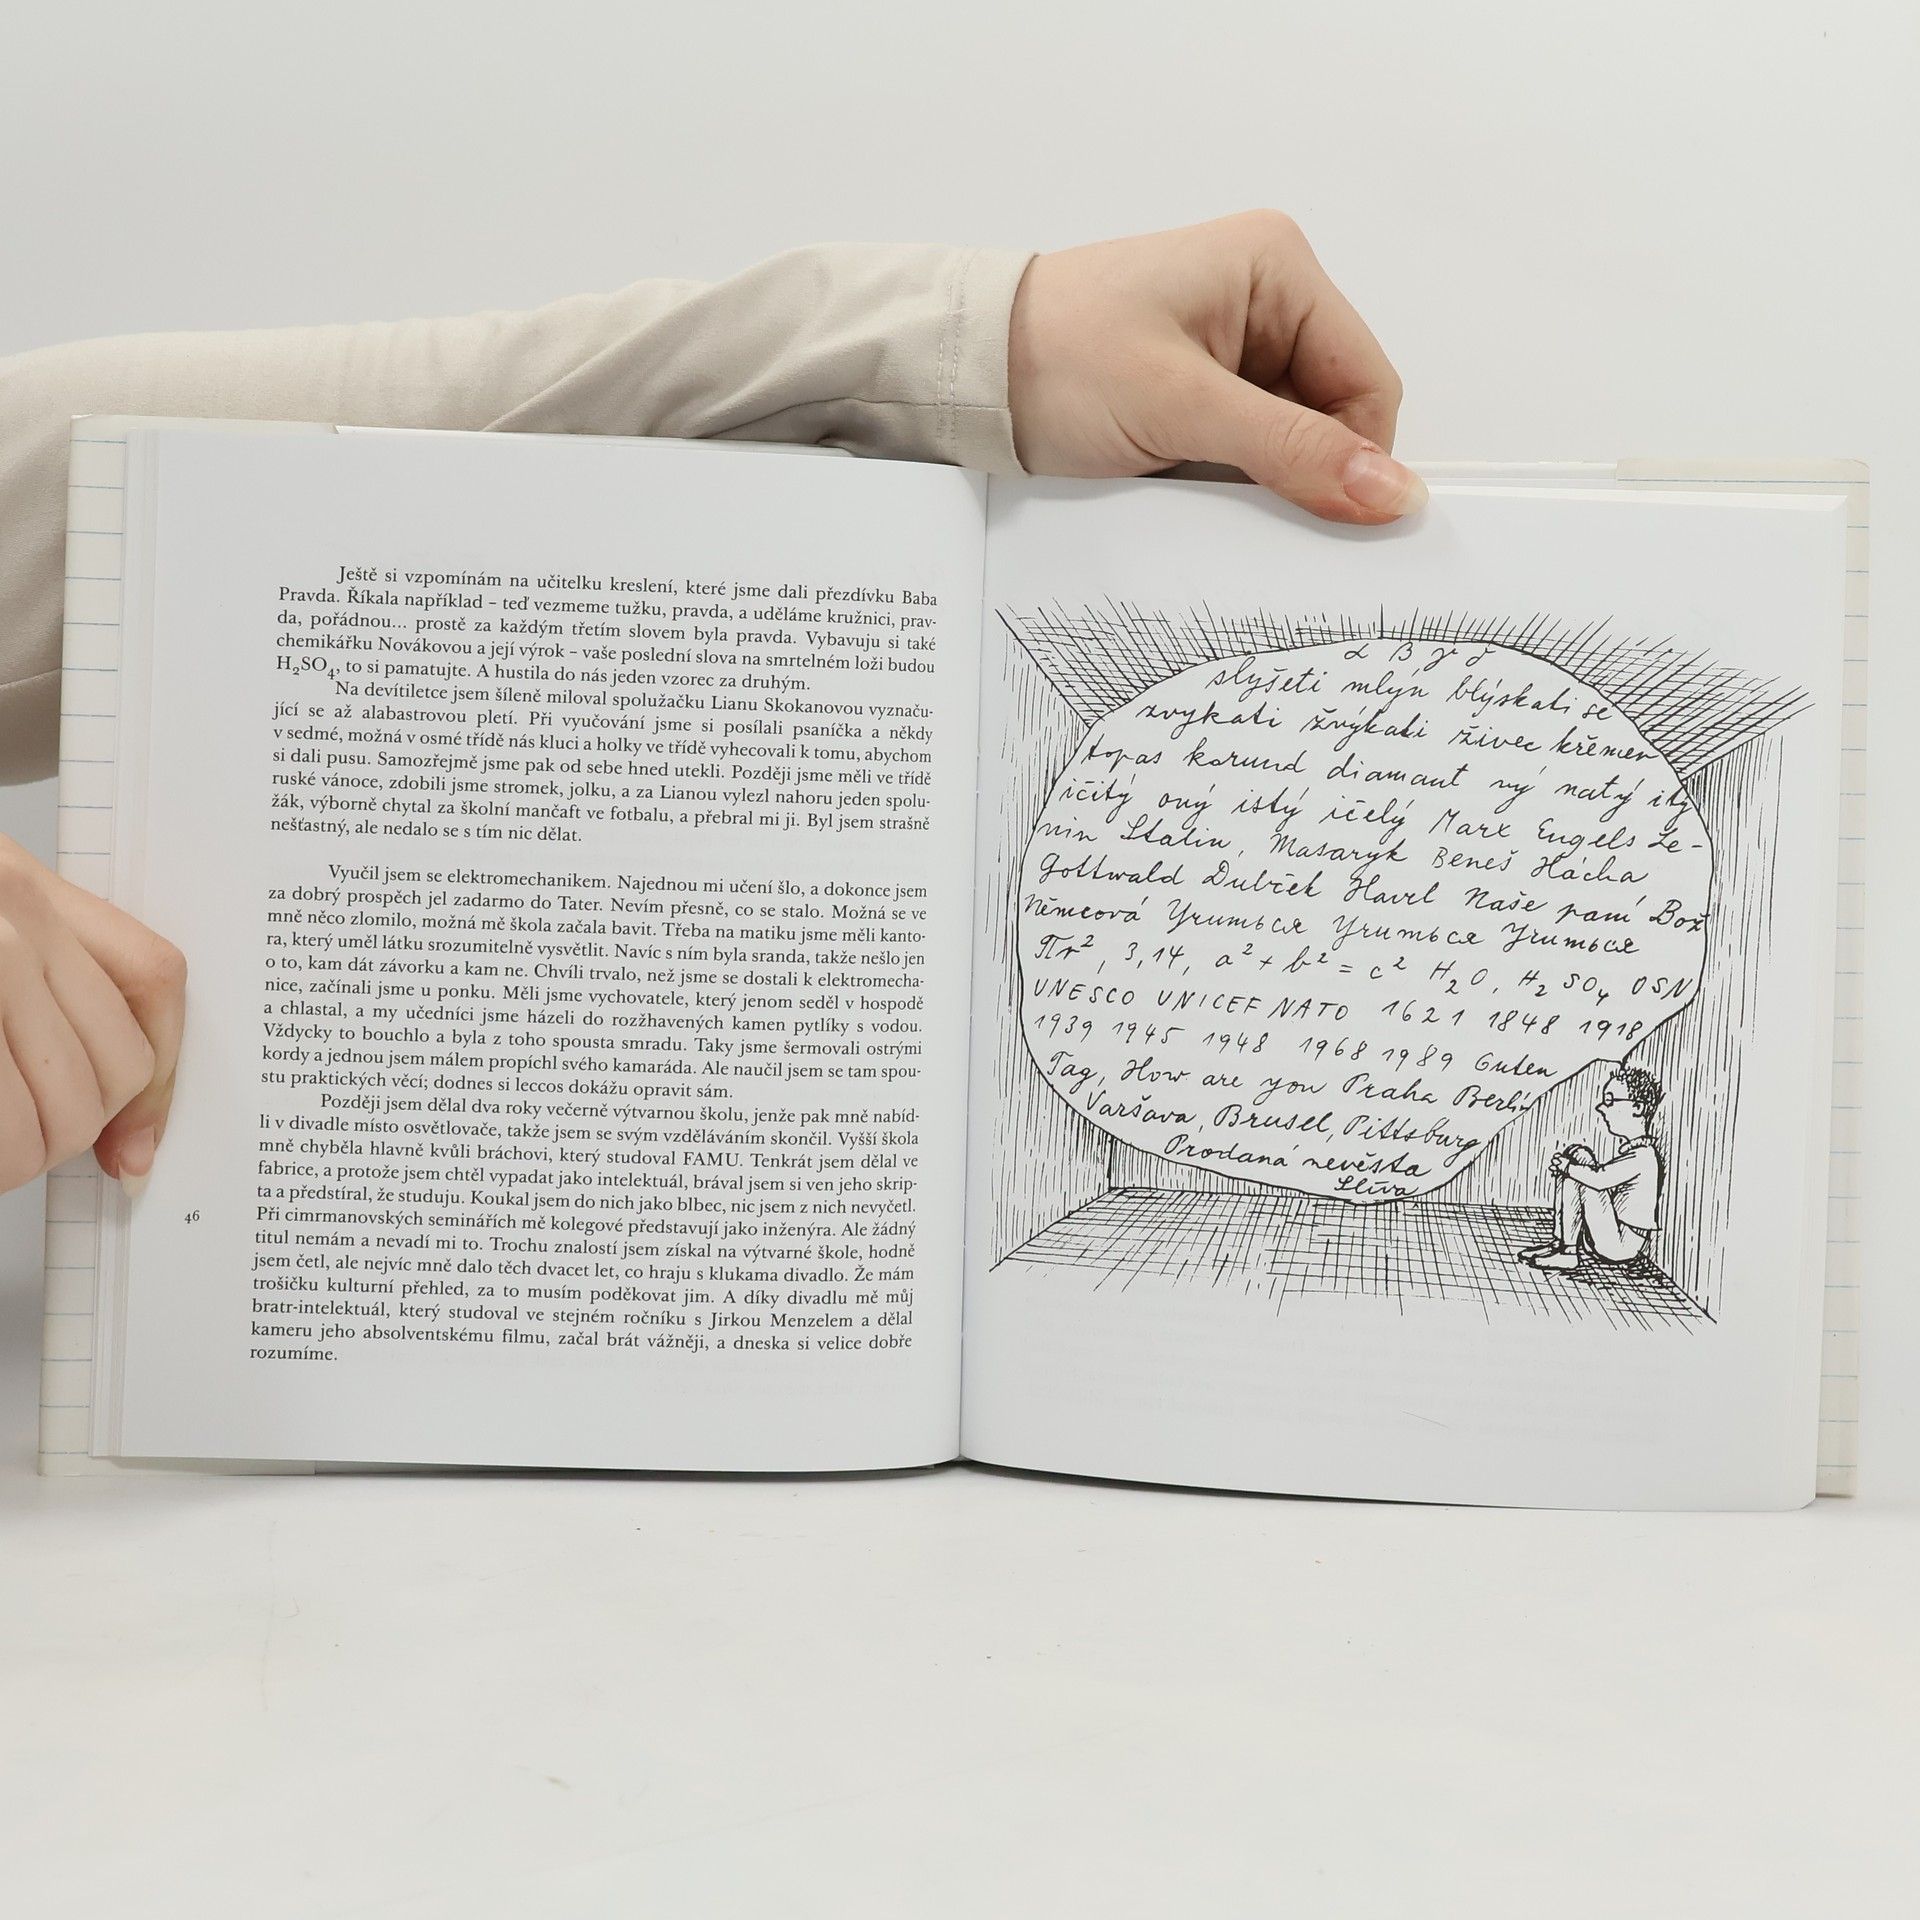 Ještě si vzpomínám na učitelku kreslení, které jsme dali přezdívku Baba
Pravda. Říkala například – teď vezmeme tužku, pravda, a uděláme kružnici, prav-
da, pořádnou... prostě za každým třetím slovem byla pravda. Vybavuju si také
chemikářku Novákovou a její výrok – vaše poslední slova na smrtelném loži budou
H₂SO₄, to si pamatujte. A hustila do nás jeden vzorec za druhým.
Na devítiletce jsem šíleně miloval spolužačku Lianu Skokanovou vyznaču-
jící se až alabastrovou pletí. Při vyučování jsme si posílali psaníčka a někdy
v sedmé, možná v osmé třídě nás kluci a holky ve třídě vyhecovali k tomu, abychom
si dali pusu. Samozřejmě jsme pak od sebe hned utekli. Později jsme měli ve třídě
ruské vánoce, zdobili jsme stromek, jolku, a za Lianou vylezl nahoru jeden spolu-
žák, výborně chytal za školní mančaft ve fotbalu, a přebral mi ji. Byl jsem strašně
nešťastný, ale nedalo se s tím nic dělat.
Vyučil jsem se elektromechanikem. Najednou mi učení šlo, a dokonce jsem
za dobrý prospěch jel zadarmo do Tater. Nevím přesně, co se stalo. Možná se ve
mně něco zlomilo, možná mě škola začala bavit. Třeba na matiku jsme měli kanto-
ra, který uměl látku srozumitelně vysvětlit. Navíc s ním byla sranda, takže nešlo jen
o to, kam dát závorku a kam ne. Chvíli trvalo, než jsme se dostali k elektromecha-
nice, začínali jsme u ponku. Měli jsme vychovatele, který jenom seděl v hospodě
a chlastal, a my učedníci jsme házeli do rozžhavených kamen pytlíky s vodou.
Vždycky to bouchlo a byla z toho spousta smradu. Taky jsme šermovali ostrými
kordy a jednou jsem málem propíchl svého kamaráda. Ale naučil jsem se tam spou-
stu praktických věcí; dodnes si leccos dokážu opravit sám.
Později jsem dělal dva roky večerně výtvarnou školu, jenže pak mně nabíd-
li v divadle místo osvětlovače, takže jsem se svým vzděláváním skončil. Vyšší škola
mně chyběla hlavně kvůli bráchovi, který studoval FAMU. Tenkrát jsem dělal ve
fabrice, a protože jsem chtěl vypadat jako intelektuál, brával jsem si ven jeho skrip-
ta a předstíral, že studuju. Koukal jsem do nich jako blbec, nic jsem z nich nevyčetl.
Při cimrmanovských seminářích mě kolegové představují jako inženýra. Ale žádný
titul nemám a nevadí mi to. Trochu znalostí jsem získal na výtvarné škole, hodně
jsem četl, ale nejvíc mně dalo těch dvacet let, co hraju s klukama divadlo. Že mám
trošičku kulturní přehled, za to musím poděkovat jim. A díky divadlu mě můj
bratr-intelektuál, který studoval ve stejném ročníku s Jirkou Menzelem a dělal
kameru jeho absolventskému filmu, začal brát vážněji, a dneska si velice dobře
rozumíme.
46
α β γ δ
slyšeti mlýn blýskati se
zvykati žvýkati živec křemen
topas korund diamant ný natý itý
ičitý ový istý ičelý Marx Engels Le-
nin Stalin, Masaryk Beneš Hácha
Gottwald Dubček Havel Naše paní Bož
Němcová Урумься Урумься Урумься
πr², 3,14, a² + b² = c² H₂O, H₂SO₄ OSN
UNESCO UNICEF NATO 1621 1848 1918
1939 1945 1948 1968 1989 Guten
Tag, How are you Praha Berlín
Varšava, Brusel, Pittsburg
Prodaná nevěsta
Slíva